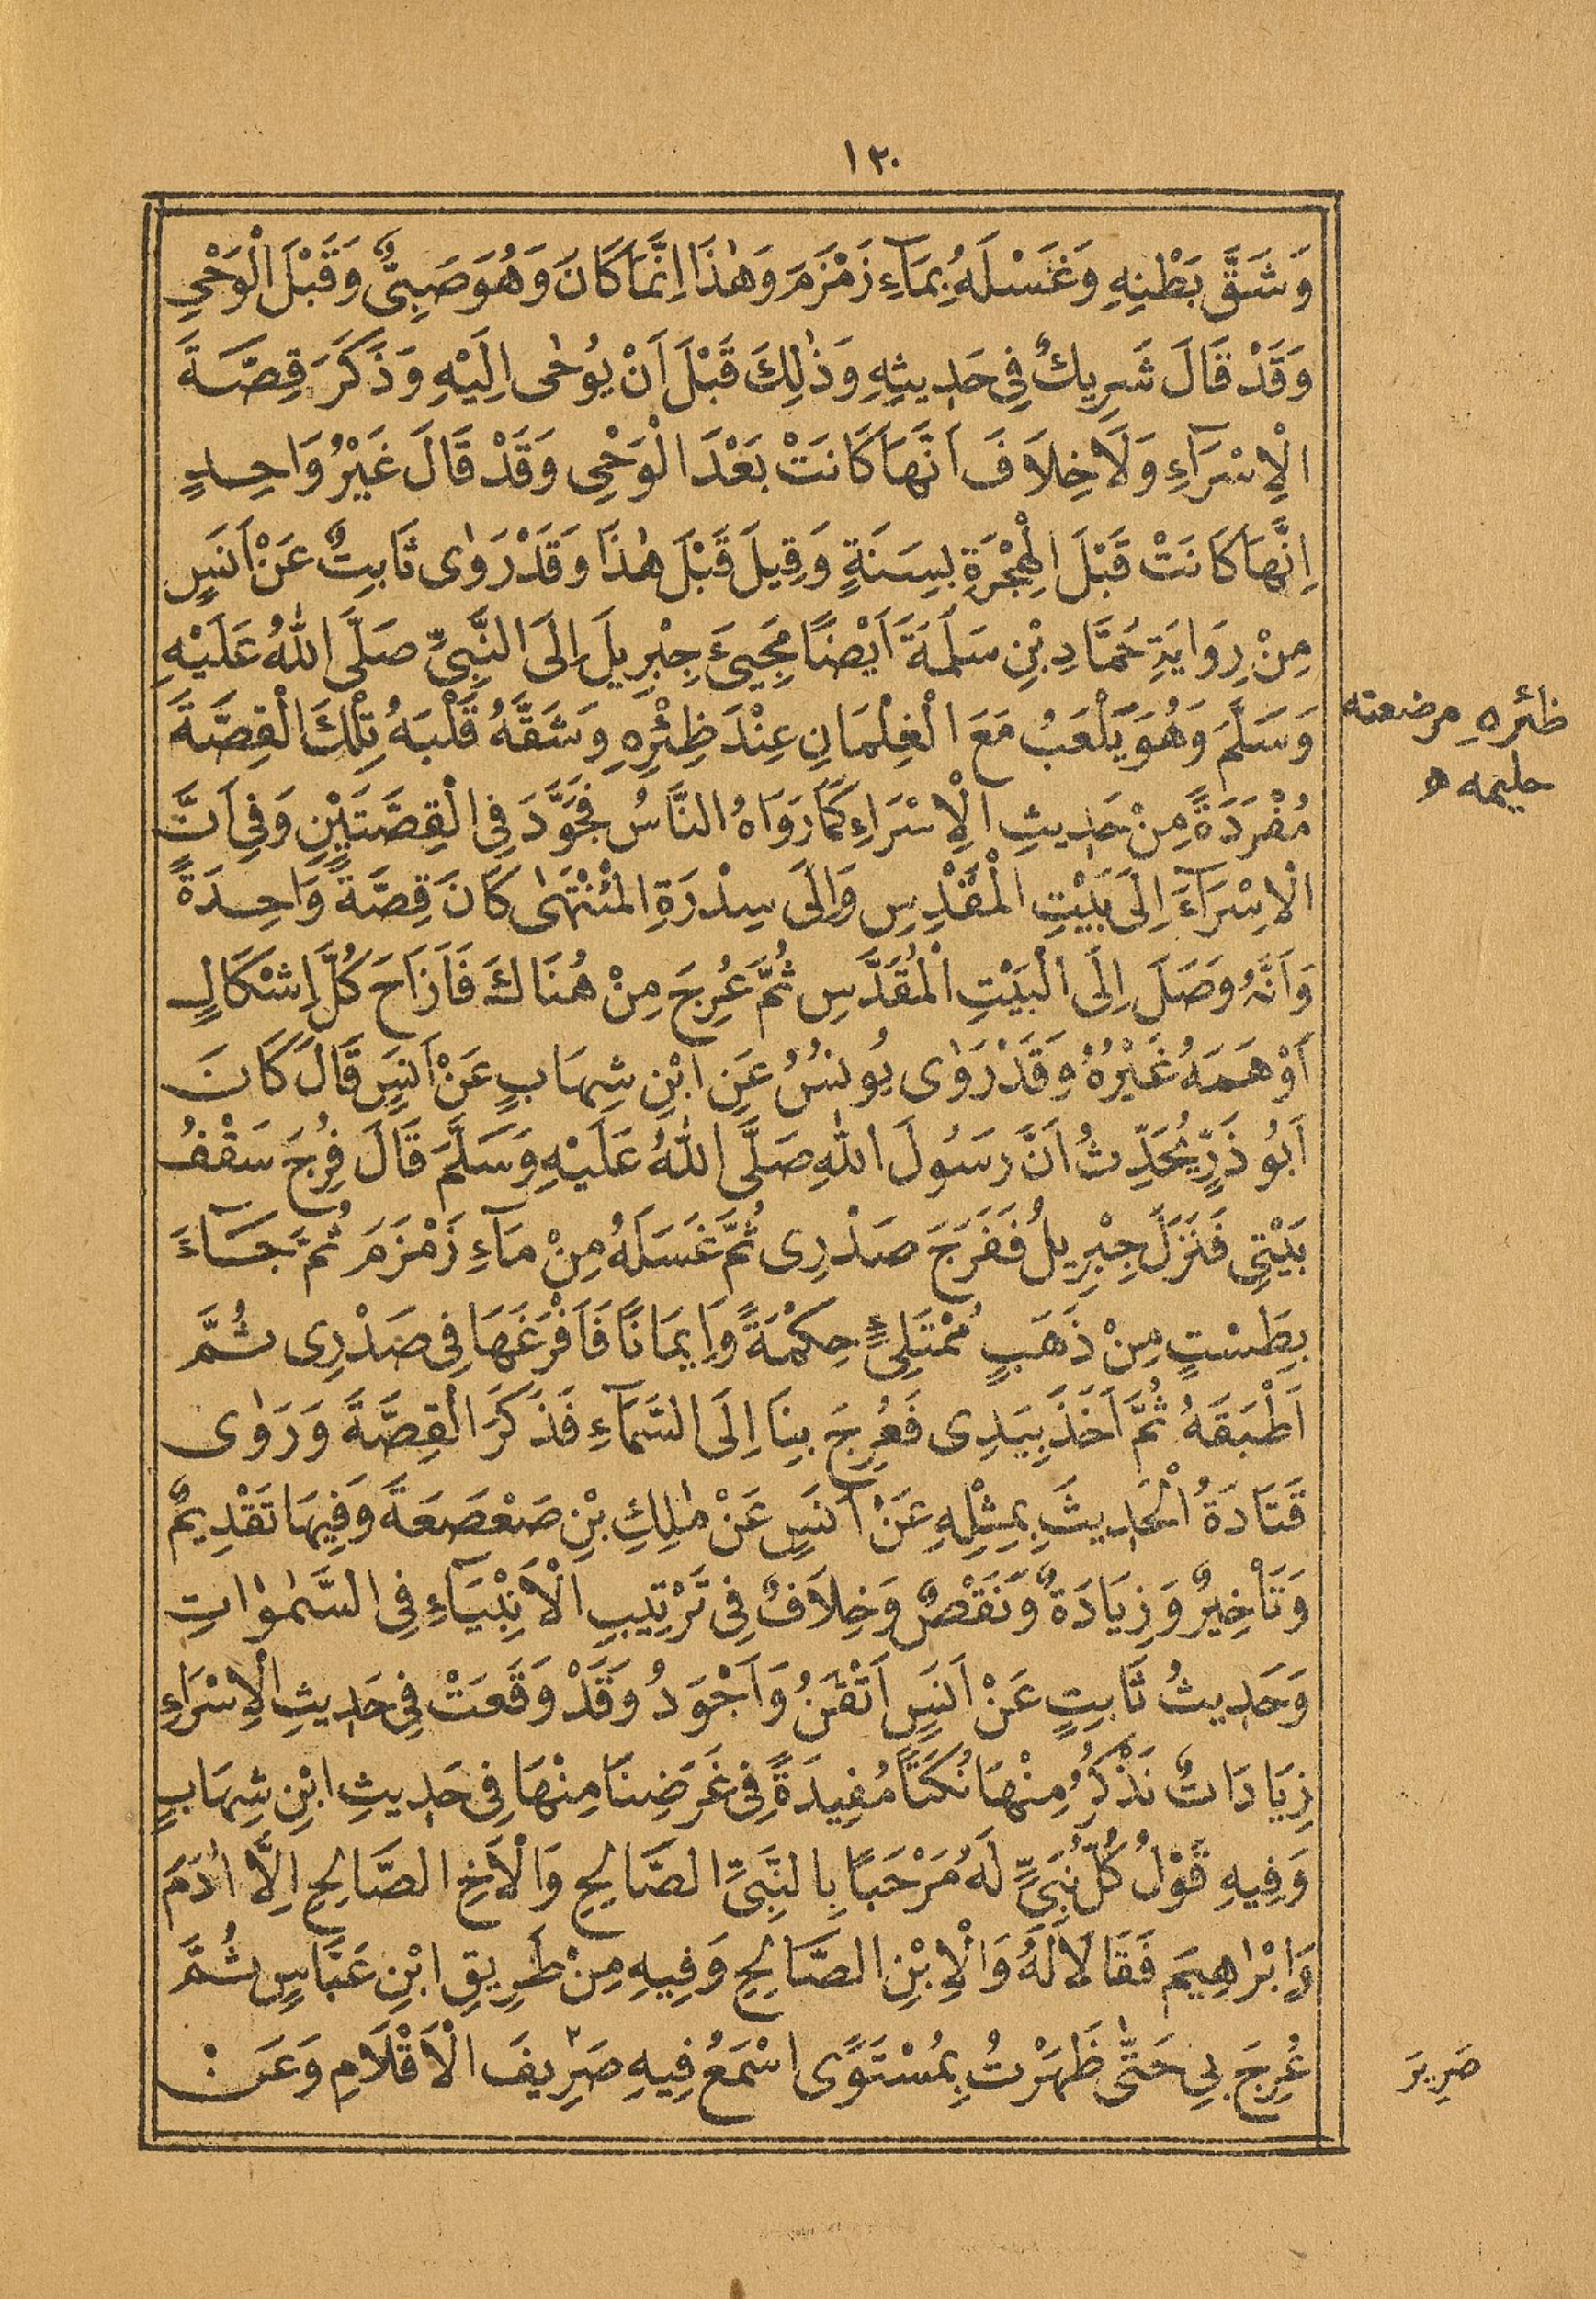 ١٣٠
وَشَقَّ بَطْنِهِ وَغَسْلَهُ بِمَآءِ زَمْزَمَ وَهٰذَا اِنَّمَا كَانَ وَهُوَ صَبِىٌّ وَقَبْلَ الْوَحْىِ
وَقَدْ قَالَ شَرِيكٌ فِى حَدِيثِهِ وَذٰلِكَ قَبْلَ اَنْ يُوحٰى اِلَيْهِ وَذَكَرَ قِصَّةَ
الْاِسْرَآءِ وَلَا خِلَافَ اَنَّهَا كَانَتْ بَعْدَ الْوَحْىِ وَقَدْ قَالَ غَيْرُ وَاحِدٍ
اِنَّهَا كَانَتْ قَبْلَ الْهِجْرَةِ بِسَنَةٍ وَقِيلَ قَبْلَ هٰذَا وَقَدْ رَوٰى ثَابِتٌ عَنْ اَنَسٍ
مِنْ رِوَايَةِ حَمَّادِ بْنِ سَلَمَةَ اَيْضًا مَجِيئَ جِبْرِيلَ اِلَى النَّبِىِّ صَلَّى اللّٰهُ عَلَيْهِ
وَسَلَّمَ وَهُوَ يَلْعَبُ مَعَ الْغِلْمَانِ عِنْدَ ظِئْرِهِ وَشَقَّهُ قَلْبَهُ تِلْكَ الْقِصَّةَ
ظئره مرضعته
حليمه ه
مُفْرَدَةً مِنْ حَدِيثِ الْاِسْرَاءِ كَمَا رَوَاهُ النَّاسُ فَجَوَّدَ فِى الْقِصَّتَيْنِ وَفِى اَنَّ
الْاِسْرَآءَ اِلَى بَيْتِ الْمَقْدِسِ وَاِلَى سِدْرَةِ الْمُنْتَهٰى كَانَ قِصَّةً وَاحِدَةً
وَاَنَّهُ وَصَلَ اِلَى الْبَيْتِ الْمُقَدَّسِ ثُمَّ عُرِجَ مِنْ هُنَاكَ فَاَزَاحَ كُلَّ اِشْكَالٍ
اَوْهَمَهُ غَيْرُهُ وَقَدْ رَوٰى يُونُسُ عَنِ ابْنِ شِهَابٍ عَنْ اَنَسٍ قَالَ كَانَ
اَبُو ذَرٍّ يُحَدِّثُ اَنَّ رَسُولَ اللّٰهِ صَلَّى اللّٰهُ عَلَيْهِ وَسَلَّمَ قَالَ فُرِجَ سَقْفُ
بَيْتِى فَنَزَلَ جِبْرِيلُ فَفَرَجَ صَدْرِى ثُمَّ غَسَلَهُ مِنْ مَآءِ زَمْزَمَ ثُمَّ جَآءَ
بِطَسْتٍ مِنْ ذَهَبٍ مُمْتَلِئٍ حِكْمَةً وَاِيمَانًا فَاَفْرَغَهَا فِى صَدْرِى ثُمَّ
اَطْبَقَهُ ثُمَّ اَخَذَ بِيَدِى فَعُرِجَ بِنَا اِلَى السَّمَآءِ فَذَكَرَ الْقِصَّةَ وَرَوٰى
قَتَادَةُ الْحَدِيثَ بِمِثْلِهِ عَنْ اَنَسٍ عَنْ مٰلِكِ بْنِ صَعْصَعَةَ وَفِيهَا تَقْدِيمٌ
وَتَأْخِيرٌ وَزِيَادَةٌ وَنَقْصٌ وَخِلَافٌ فِى تَرْتِيبِ الْاَنْبِيَآءِ فِى السَّمٰوَاتِ
وَحَدِيثُ ثَابِتٍ عَنْ اَنَسٍ اَتْقَنُ وَاَجْوَدُ وَقَدْ وَقَعَتْ فِى حَدِيثِ الْاِسْرَاءِ
زِيَادَاتٌ نَذْكُرُ مِنْهَا نُكَتًا مُفِيدَةً فِى غَرَضِنَا مِنْهَا فِى حَدِيثِ ابْنِ شِهَابٍ
وَفِيهِ قَوْلُ كُلِّ نَبِىٍّ لَهُ مَرْحَبًا بِالنَّبِىِّ الصَّالِحِ وَالْاَخِ الصَّالِحِ اِلَّا اٰدَمَ
وَاِبْرَاهِيمَ فَقَالَا لَهُ وَالْاِبْنِ الصَّالِحِ وَفِيهِ مِنْ طَرِيقِ ابْنِ عَبَّاسٍ ثُمَّ
عُرِجَ بِى حَتّٰى ظَهَرْتُ بِمُسْتَوًى اَسْمَعُ فِيهِ صَرِيفَ الْاَقْلَامِ وَعَنْ
صَرِيرَ